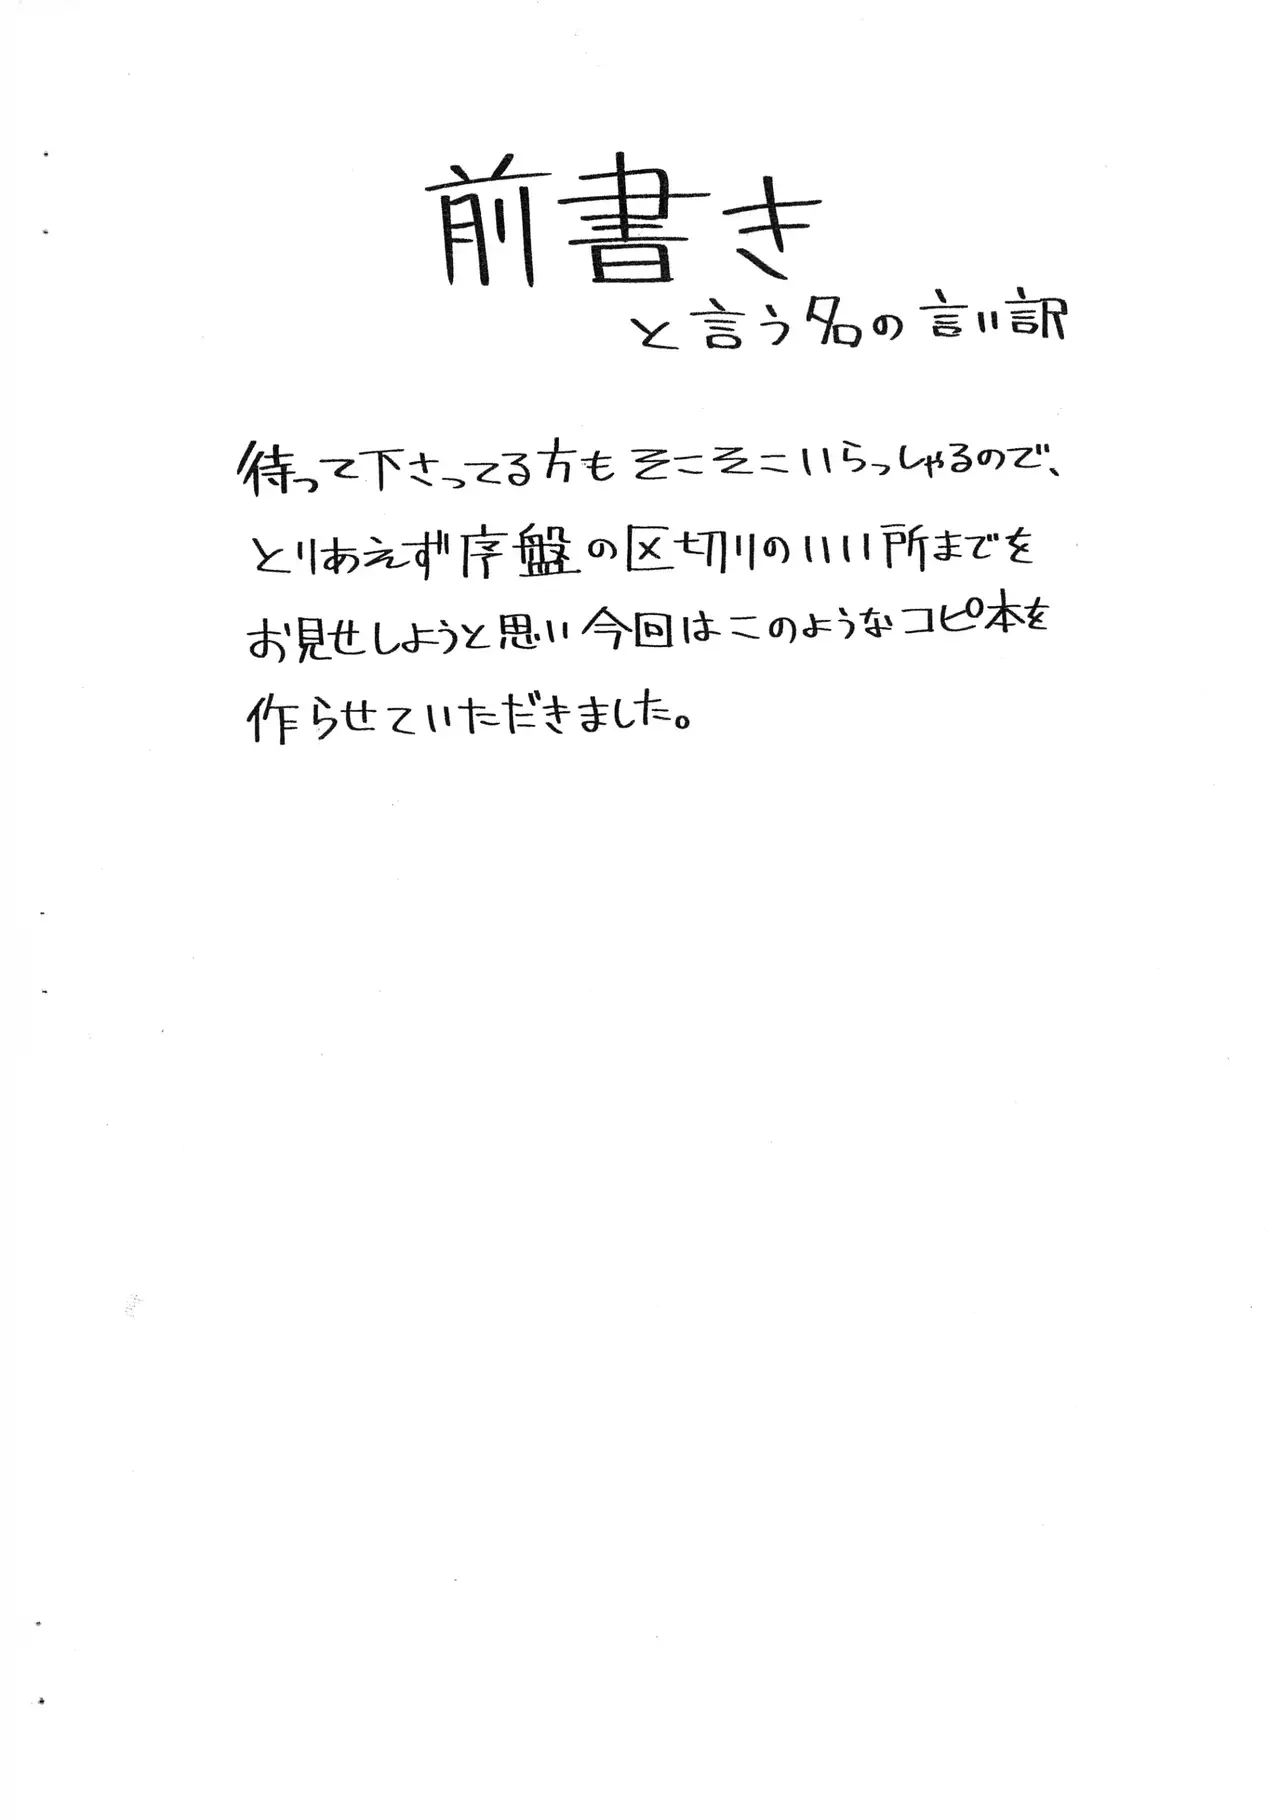 前書き
と言う名の言い訳
待って下さってる方もそこそこいらっしゃるので、
とりあえず序盤の区切りのいい所までを
お見せしようと思い今回はこのようなコピ本を
作らせていただきました。